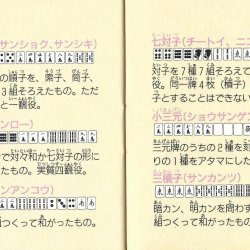 サンショク、サンシキ）
の順子を、萬子、筒子、
3組そろえたもの。ただ
と一飜役。
ンロー）
で対々和か七対子の形に
たもの。実質四飜役。
ンアンコウ）
組つくって和がったもの。
七対子（チートイ、ニコ
対子を7種7組そろえて
役。同一牌4枚（槓子）
子とすることはできない
小三元（ショウサンゲン
三元牌のうちの2種を刻
りの1種をアタマにした
三槓子（サンカンツ）
暗カン、明カンを問わず
組つくって和がったもの